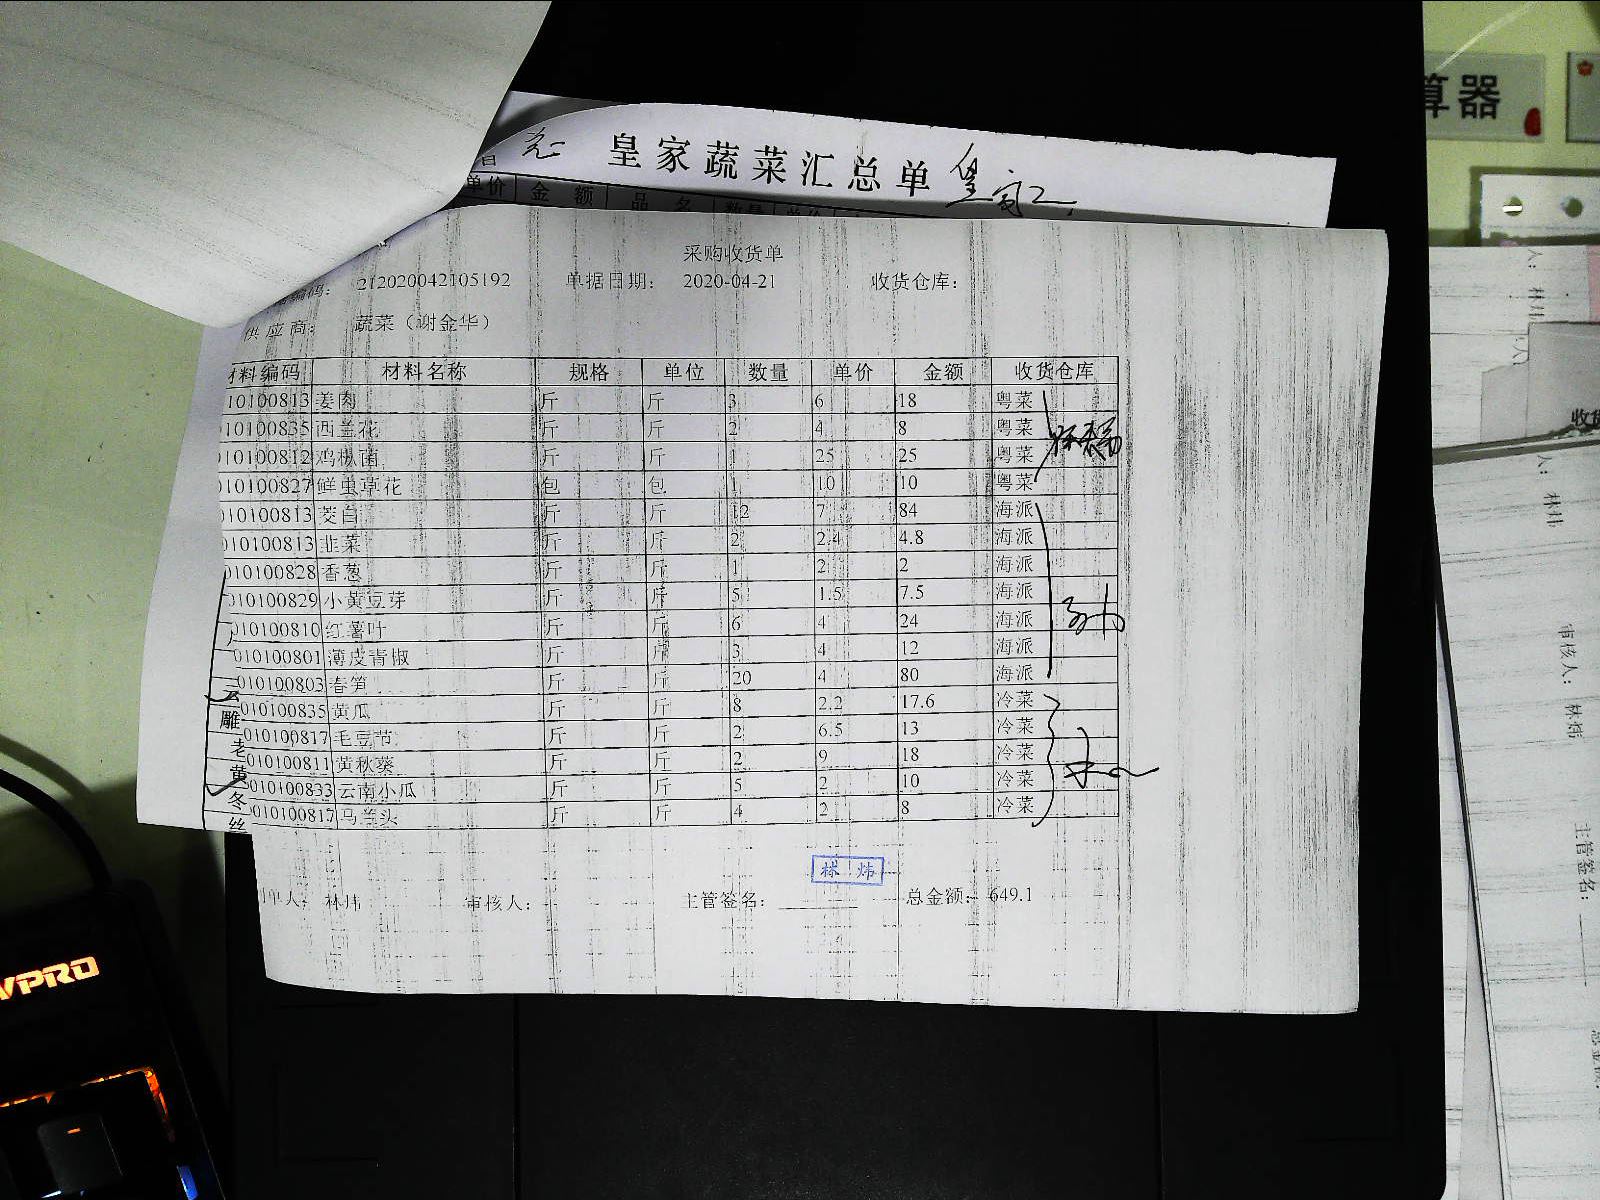 算器
皇家蔬菜汇总单
单价 金额 品名 数量 单价
采购收货单
编码： 212020042105192 单据日期： 2020-04-21 收货仓库：
供应商： 蔬菜（谢金华）
材料编码 材料名称 规格 单位 数量 单价 金额 收货仓库
010100813 姜肉 斤 斤 3 6 18 粤菜
010100835 西兰花 斤 斤 2 4 8 粤菜
010100812 鸡枞菌 斤 斤 1 25 25 粤菜
010100827 鲜虫草花 包 包 1 10 10 粤菜
010100813 茭白 斤 斤 12 7 84 海派
010100813 韭菜 斤 斤 2 2.4 4.8 海派
010100828 香葱 斤 斤 1 2 2 海派
010100829 小黄豆芽 斤 斤 5 1.5 7.5 海派
010100810 红薯叶 斤 斤 6 4 24 海派
010100801 薄皮青椒 斤 斤 3 4 12 海派
010100803 春笋 斤 斤 20 4 80 海派
010100835 黄瓜 斤 斤 8 2.2 17.6 冷菜
010100817 毛豆节 斤 斤 2 6.5 13 冷菜
010100811 黄秋葵 斤 斤 2 9 18 冷菜
010100833 云南小瓜 斤 斤 5 2 10 冷菜
010100817 马兰头 斤 斤 4 2 8 冷菜
雕
老
黄
冬
丝
林炜
单人： 林炜 审核人： 主管签名： 总金额： 649.1
VPRO
人： 林炜
收货
人： 林炜
审核人： 林炜
主管签名：